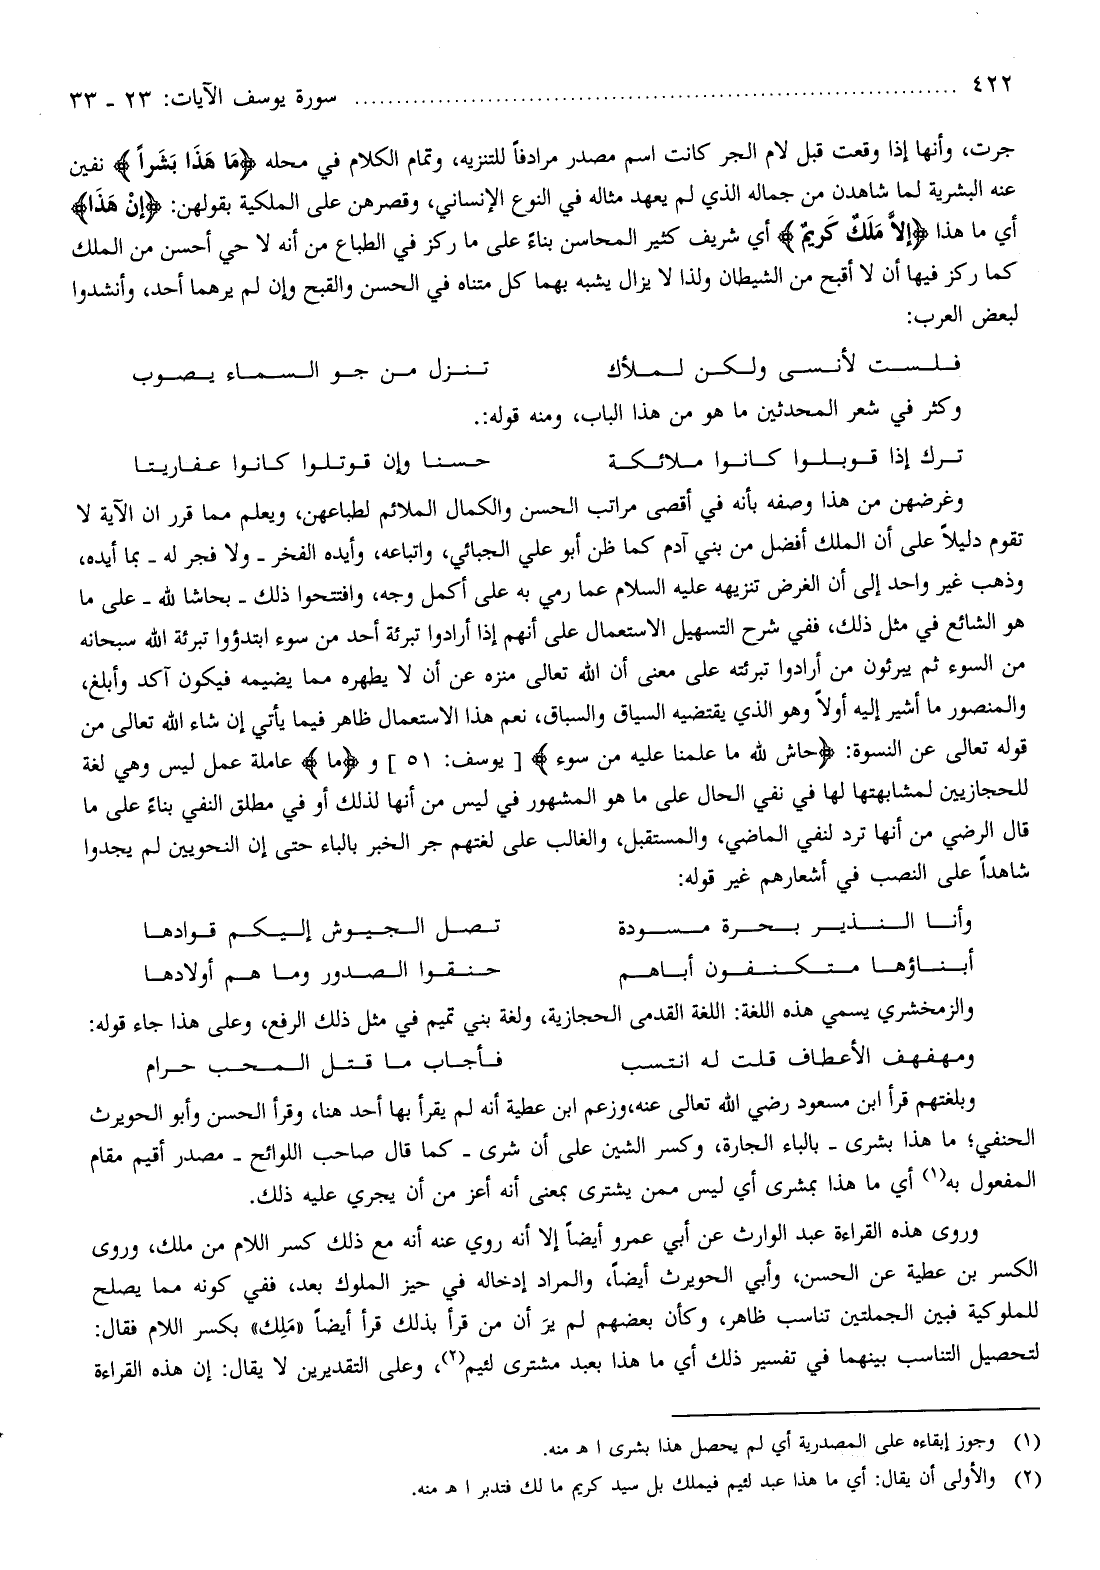 ٤٢٢ ........ سورة يوسف الآيات: ٢٣ ـ ٣٣
جرت، وأنها إذا وقعت قبل لام الجر كانت اسم مصدر مرادفاً للتنزيه، وتمام الكلام في محله ﴿مَا هَذَا بَشَراً﴾ نفين
عنه البشرية لما شاهدن من جماله الذي لم يعهد مثاله في النوع الإنساني، وقصرهن على الملكية بقولهن: ﴿إنْ هَذَا﴾
أي ما هذا ﴿إلاَّ مَلَكٌ كَرِيمٌ﴾ أي شريف كثير المحاسن بناءً على ما ركز في الطباع من أنه لا حي أحسن من الملك
كما ركز فيها أن لا أقبح من الشيطان ولذا لا يزال يشبه بهما كل متناه في الحسن والقبح وإن لم يرهما أحد، وأنشدوا
لبعض العرب:
فلست لأنسى ولكن لملأك تنزل من جو السماء يصوب
وكثر في شعر المحدثين ما هو من هذا الباب، ومنه قوله:.
ترك إذا قوبلوا كانوا ملائكة حسنا وإن قوتلوا كانوا عفاريتا
وغرضهن من هذا وصفه بأنه في أقصى مراتب الحسن والكمال الملائم لطباعهن، ويعلم مما قرر ان الآية لا
تقوم دليلاً على أن الملك أفضل من بني آدم كما ظن أبو علي الجبائي، واتباعه، وأيده الفخر ـ ولا فجر له ـ بما أيده،
وذهب غير واحد إلى أن الغرض تنزيهه عليه السلام عما رمي به على أكمل وجه، وافتتحوا ذلك ـ بحاشا لله ـ على ما
هو الشائع في مثل ذلك، ففي شرح التسهيل الاستعمال على أنهم إذا أرادوا تبرئة أحد من سوء ابتدؤوا تبرئة الله سبحانه
من السوء ثم يبرئون من أرادوا تبرئته على معنى أن الله تعالى منزه عن أن لا يطهره مما يضيمه فيكون آكد وأبلغ،
والمنصور ما أشير إليه أولاً وهو الذي يقتضيه السياق والسباق، نعم هذا الاستعمال ظاهر فيما يأتي إن شاء الله تعالى من
قوله تعالى عن النسوة: ﴿حاش لله ما علمنا عليه من سوء﴾ [ يوسف: ٥١ ] و ﴿ما﴾ عاملة عمل ليس وهي لغة
للحجازيين لمشابهتها لها في نفي الحال على ما هو المشهور في ليس من أنها لذلك أو في مطلق النفي بناءً على ما
قال الرضي من أنها ترد لنفي الماضي، والمستقبل، والغالب على لغتهم جر الخبر بالباء حتى إن النحويين لم يجدوا
شاهداً على النصب في أشعارهم غير قوله:
وأنا النذير بحرة مسودة تصل الجيوش إليكم قوادها
أبناؤها متكنفون أباهم حنقوا الصدور وما هم أولادها
والزمخشري يسمي هذه اللغة: اللغة القدمى الحجازية، ولغة بني تميم في مثل ذلك الرفع، وعلى هذا جاء قوله:
ومهفهف الأعطاف قلت له انتسب فأجاب ما قتل المحب حرام
وبلغتهم قرأ ابن مسعود رضي الله تعالى عنه،وزعم ابن عطية أنه لم يقرأ بها أحد هنا، وقرأ الحسن وأبو الحويرث
الحنفي؛ ما هذا بشرى ـ بالباء الجارة، وكسر الشين على أن شرى ـ كما قال صاحب اللوائح ـ مصدر أقيم مقام
المفعول به(١) أي ما هذا بمشرى أي ليس ممن يشترى بمعنى أنه أعز من أن يجري عليه ذلك.
وروى هذه القراءة عبد الوارث عن أبي عمرو أيضاً إلا أنه روي عنه أنه مع ذلك كسر اللام من ملك، وروى
الكسر بن عطية عن الحسن، وأبي الحويرث أيضاً، والمراد إدخاله في حيز الملوك بعد، ففي كونه مما يصلح
للملوكية فبين الجملتين تناسب ظاهر، وكأن بعضهم لم يرَ أن من قرأ بذلك قرأ أيضاً «مَلِك» بكسر اللام فقال:
لتحصيل التناسب بينهما في تفسير ذلك أي ما هذا بعبد مشترى لئيم(٢)، وعلى التقديرين لا يقال: إن هذه القراءة
(١) وجوز إبقاءه على المصدرية أي لم يحصل هذا بشرى ا هـ منه.
(٢) والأولى أن يقال: أي ما هذا عبد لئيم فيملك بل سيد كريم ما لك فتدبر ا هـ منه.